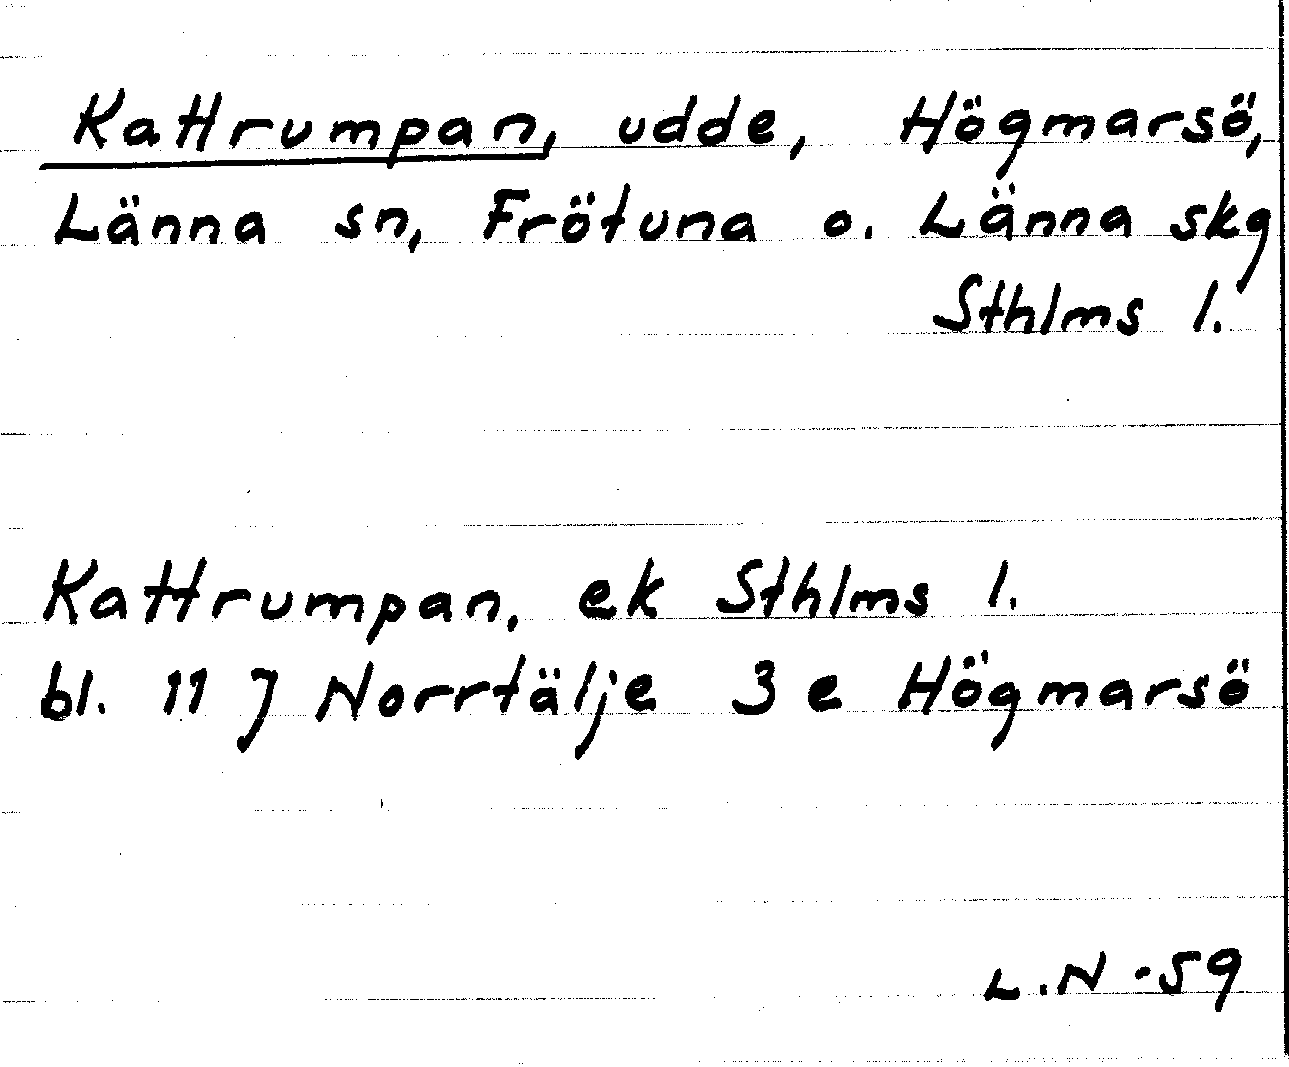 Kattrumpan, udde, Högmarsö,
Länna sn, Frötuna o. Länna skg
Sthlms l.
Kattrumpan, ek Sthlms l.
bl. 11 J Norrtälje 3 e Högmarsö
L.N -59